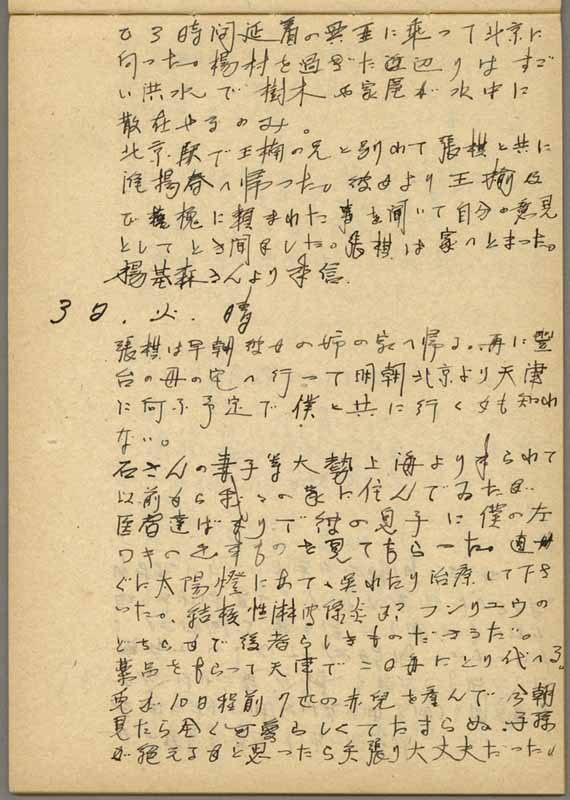 ひ3時間延着の興亜に乗って北京に
向った。楊村を過ぎた近辺りはすご
い洪水で樹木や家屋が水中に
散在するのみ。
北京駅で王楠の兄と別れて張棋と共に
淮揚春へ帰った。彼女より王
で 槐に頼まれた事を聞いて自分の意見
としてとき聞かした。張棋は家へとまった。
楊基森さんより来信
3日.火.晴
張棋は早朝彼女の姉の家へ帰る。再に豊
台の母の宅へ行って明朝北京より天津
に向ふ予定で僕と共に行くかも知れ
ない。
石さんの妻子等大勢上海より来られて
以前から我々の家に住んでゐた
医者達ばかりで彼の息子に僕の左
ワキの きものを見てもらった。直
ぐに太陽燈にあて、呉れたり治療して下さ
った。結核性淋巴腺炎か?フンリュウの
どちらかで後者らしきものださうだ。
薬品をもらって天津で二日毎にとり代へる。
兎が10日程前7匹の赤兒を産んで今朝
見たら全く可愛らしくてたまらぬ。子孫
が絶えるかと思ったら矢張り大丈夫だった。